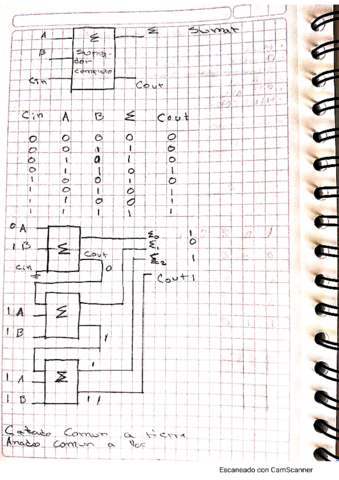 A Σ Σ Sumar
B Sumador completo
Cin Cout
Cin A B Σ Cout
0 0 0 0 0
0 0 1 1 0
0 1 0 1 0
0 1 1 0 1
1 0 0 1 0
1 0 1 0 1
1 1 0 0 1
1 1 1 1 1
0 A Σ0 1
1 B Σ Cout Σ1 0
Cin 0 Σ2 1
Cout 1
1 A Σ
1 B 1
1
1 A Σ
1 B 1 1
Catodo comun a tierra
Anodo comun a Vcc
Escaneado con CamScanner